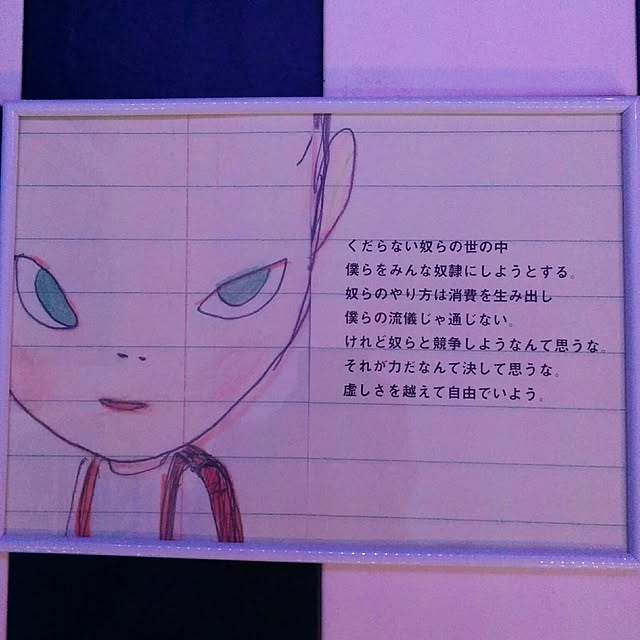 くだらない奴らの世の中
僕らをみんな奴隷にしようとする。
奴らのやり方は消費を生み出し
僕らの流儀じゃ通じない。
けれど奴らと競争しようなんて思うな。
それが力だなんて決して思うな。
虚しさを越えて自由でいよう。